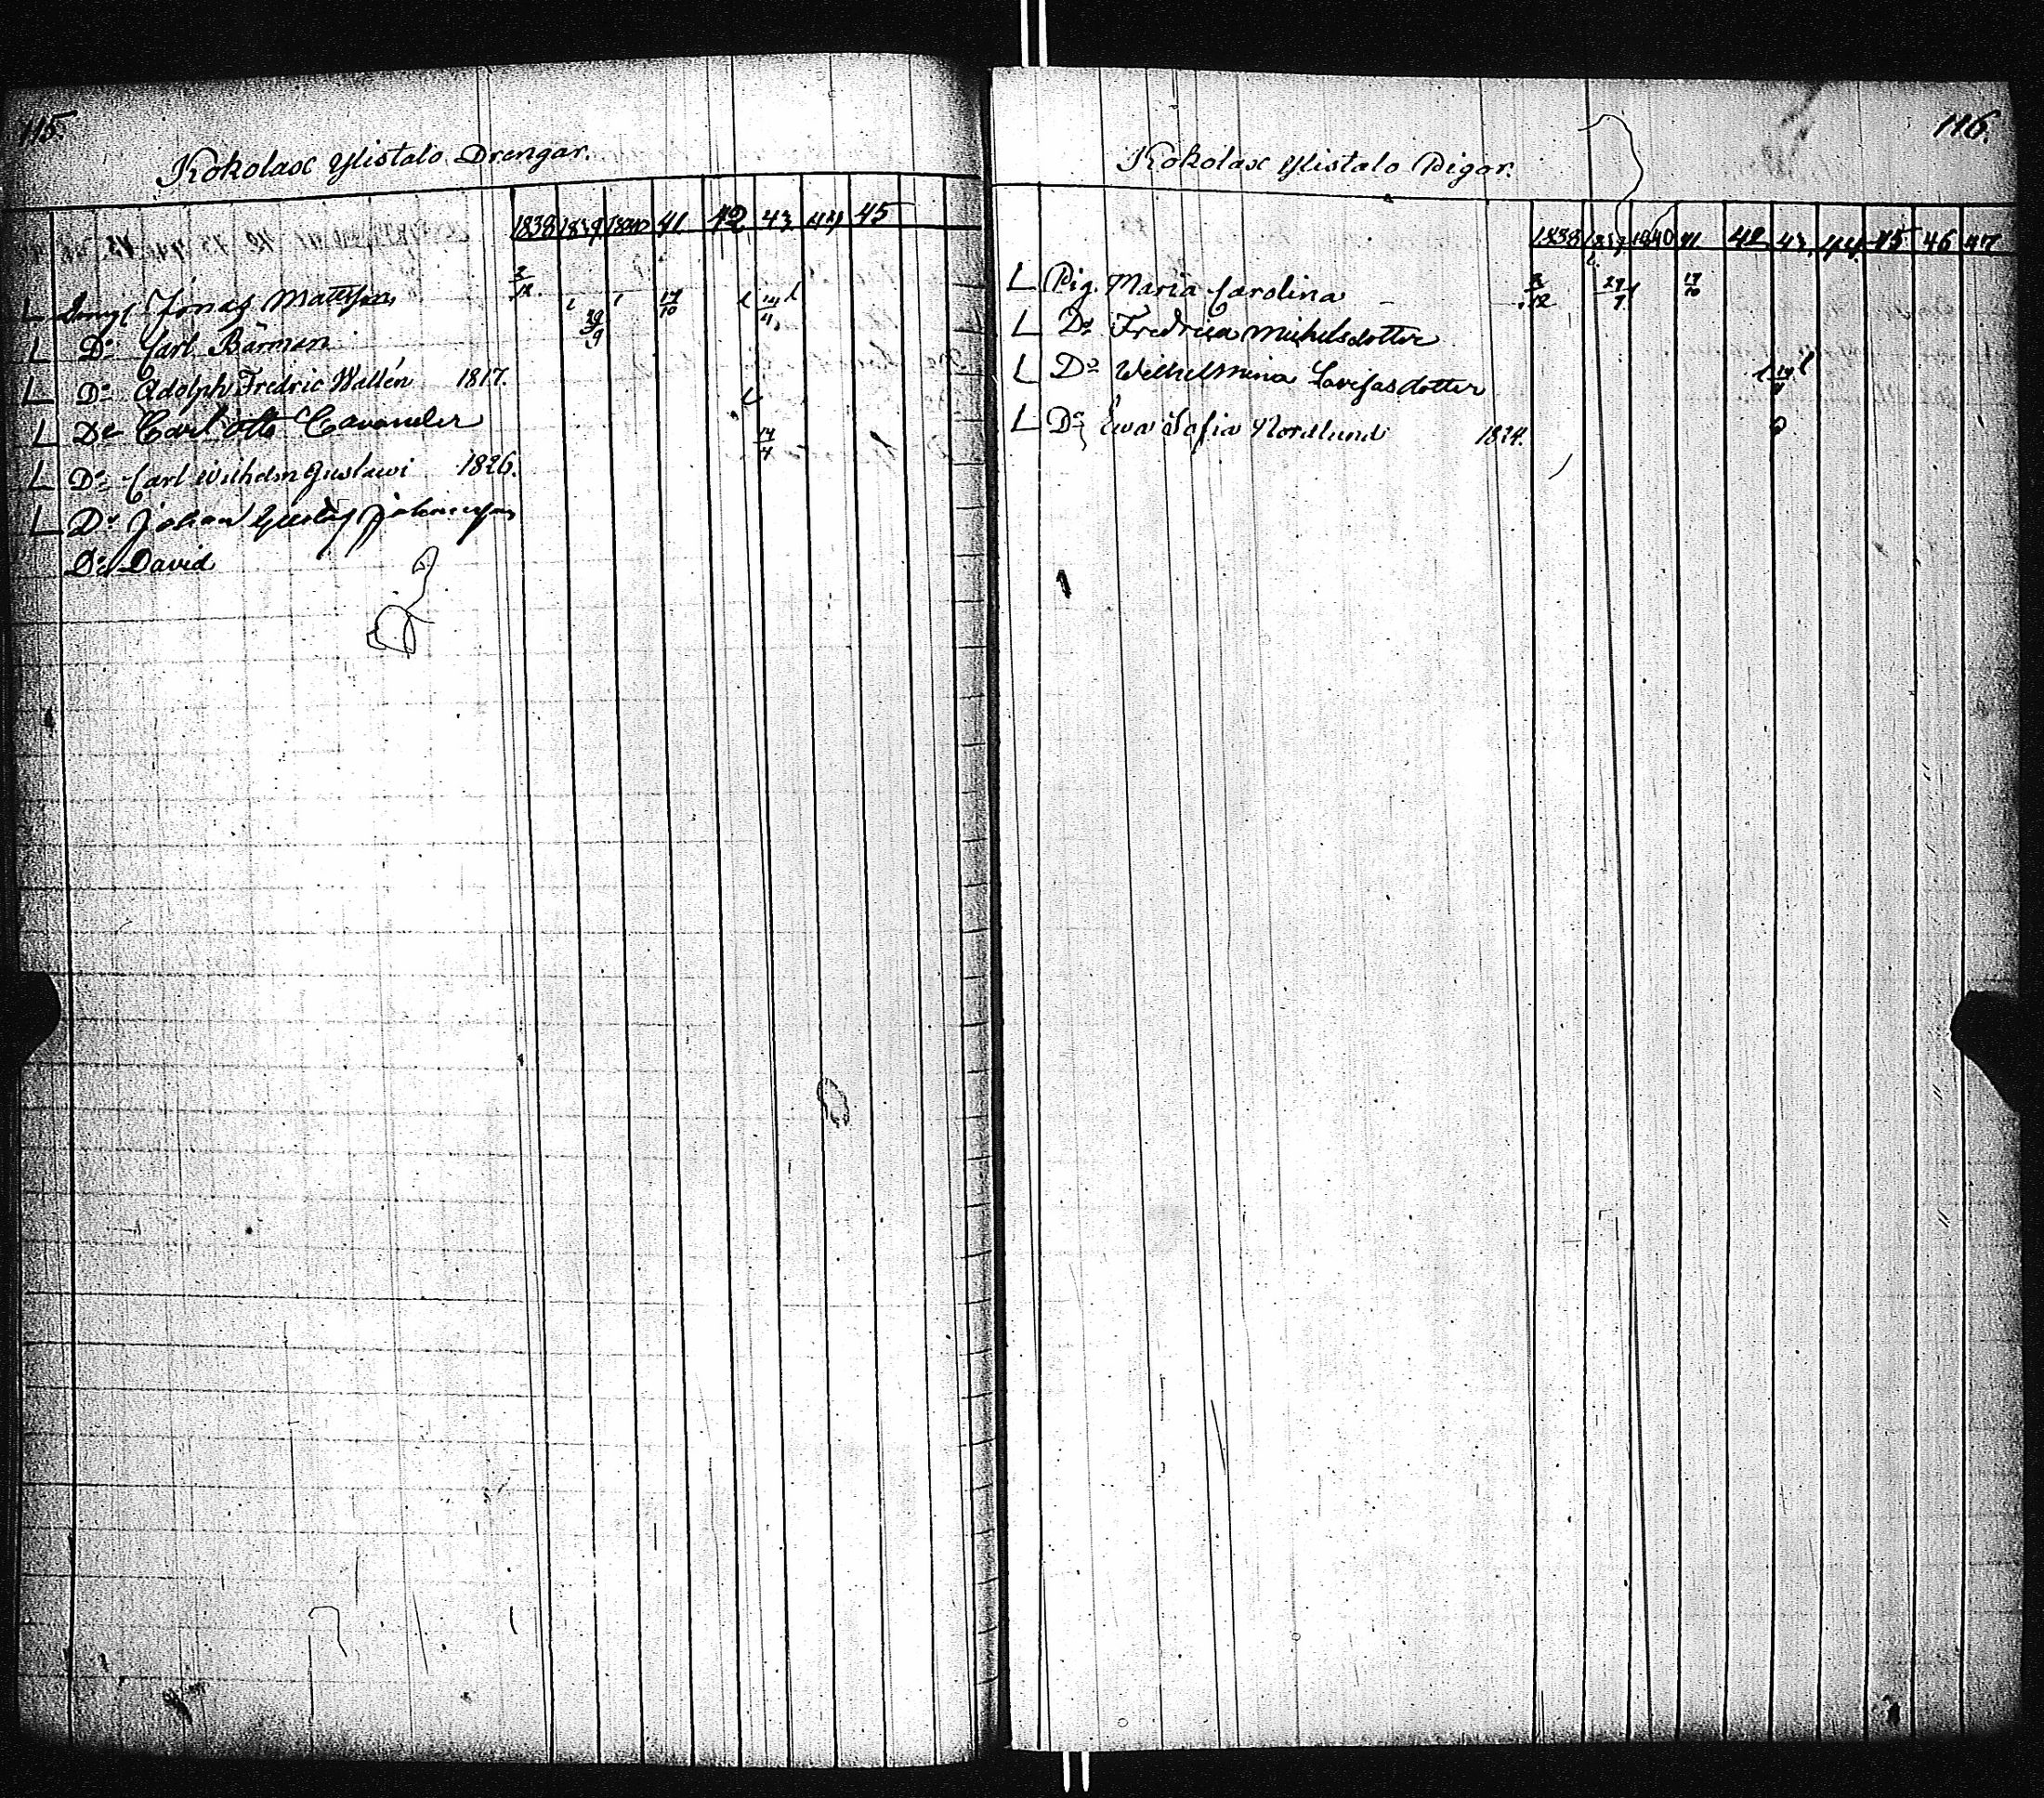 115.
Kokolax Ylistalo Drengar.
1838 1839 1840 41 42 43 44 45
L Jonas Mattsson 2/12 17/10 14/4
L Do Carl Bärman 29/9
L Do Adolph Fredric Wallén 1817.
L Do Carl Otto Cavander 14/4
L Do Carl Wilhelm Gustawi 1826.
L Do Johan Gustaf Johansson
Do David
116.
Kokolax Ylistalo Pigor.
1838 1839 1840 41 42 43 44 45 46 47
L Pig. Maria Carolina 2/12 29/9 17/10
L Do Fredrica Michelsdotter
L Do Wilhelmina Lovisasdotter
L Do Ewa Sofia Nordlund 1824.